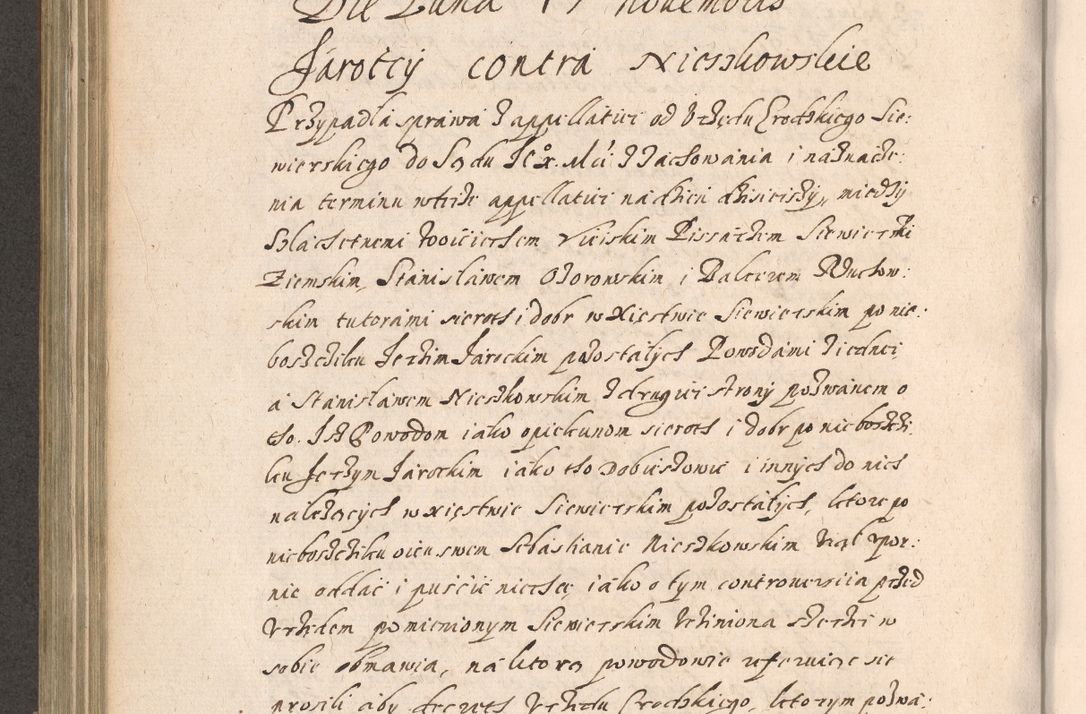 Die Lunæ 17 novembris
Jároccy contra Nieszkowskie
Przypadła sprawa z appellatiei od Vrzędu Grodzkiego Sie:
wierskiego do Sądu JE° X. Mći z zachowania i naznacze:
nia terminu wteize appellatiei nadzien dzisieiszy, między
Szlachetnemi Woiciechem Pissarzem Siewierski
Ziemskim, Stanisławem Ożorowskim i Balcerem
skim tutorami sierot i dobr w Xięstwie Siewierskim po nie:
boszczyku Jerzim Jarockim pozostałych Powodámi ziednei
á Stanisławem Nieszkowskim z drugiei strony pozwánem o
tho. Isz Powodom iako opiekunom sieroth i dobr po nieboszczi
ku Jerzym Jarockim iáko tho Dobieszowic i innych do nich
nalezących w xięstwie Siewierskim pozostáłych, ktore po
nieboszczyku oicu swem Sebasthianie Nieszkowskim vpor:
nie oddać i puścić niechce, iako o tym controuersiia przed
Vrzędem pomienionym Siewierskim vcziniona szerzei w
sobie obmawia, na ktorą powodowie referuiąc sie
prosili aby decreth Vrzędu Grodzkiego, ktorym pozwá: